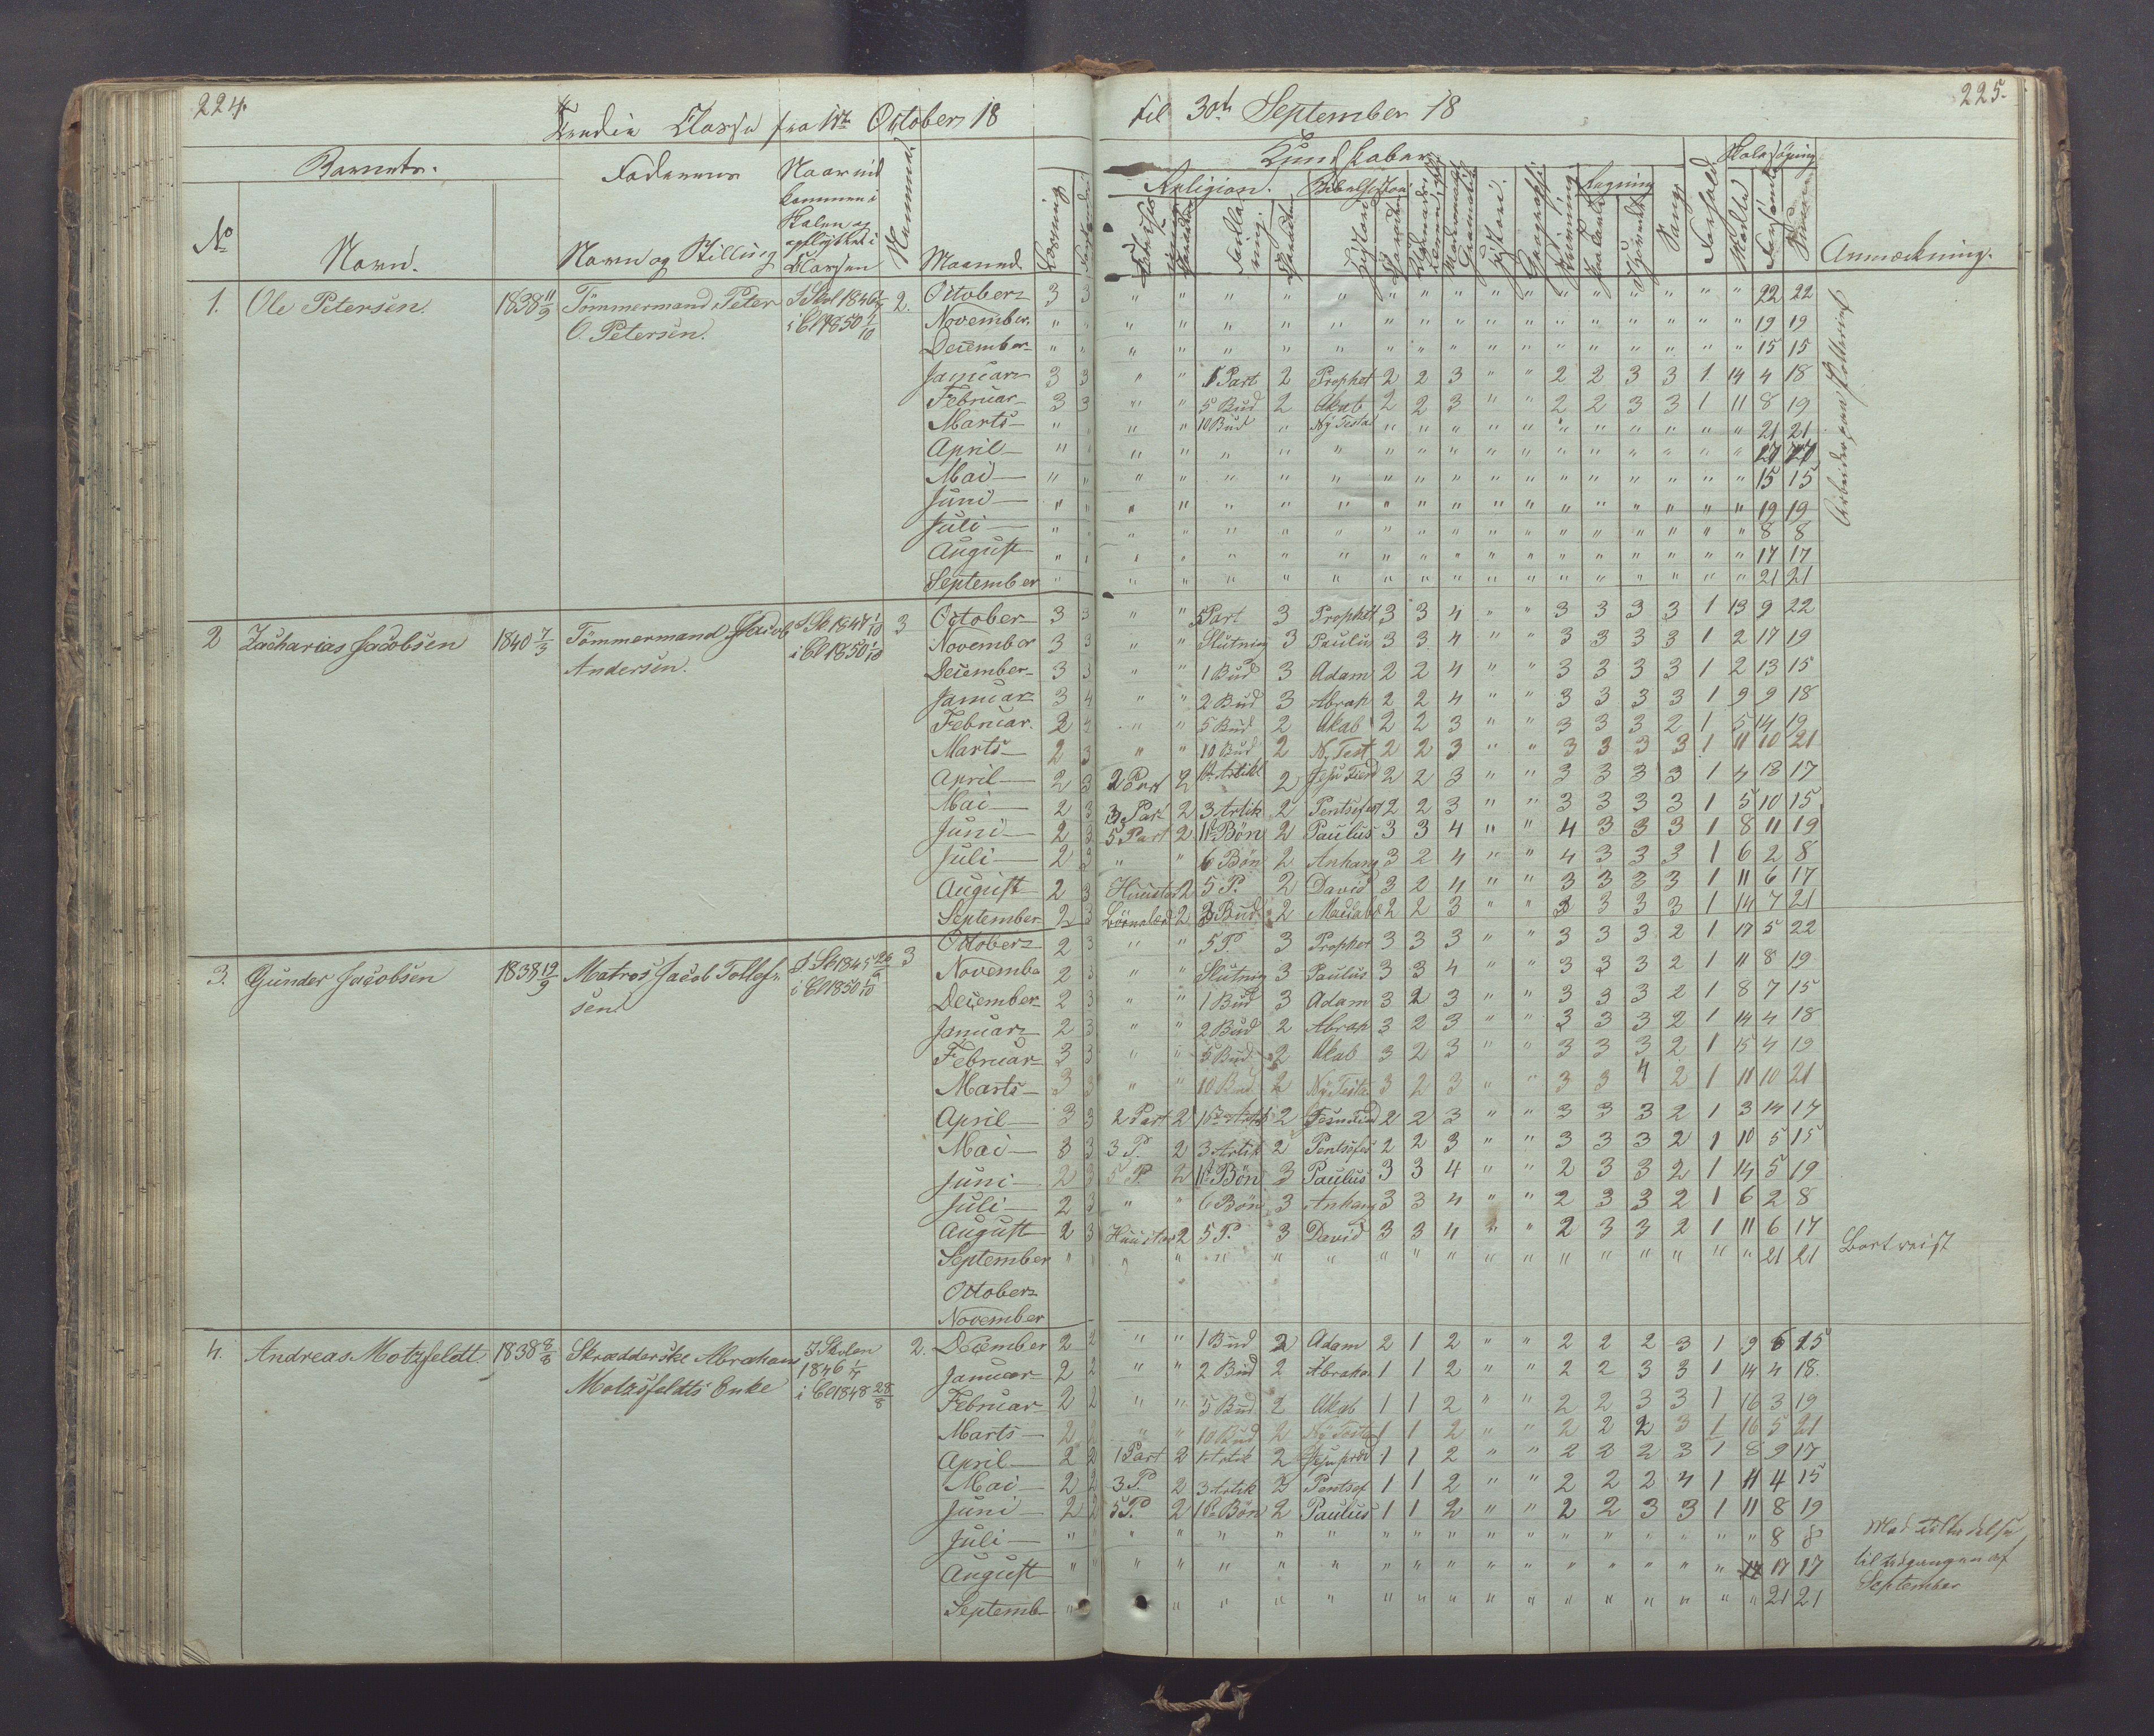 224.
Tredie Classe fra 1ste October 18
til 30te September 18
225.
Barnets.
Faderens
Naar ind
kommen i
Skolen og
opflyttet i
Classen
Kundskaber
Religion.
Skolesøgning
No
Navn.
Navn og Stilling
Nummer
Maaned
Læsning
Historie.
Geographi
Regning
Sang
Forhold
Mødte
Forsømte
Anmærkning.
1. Ole Petersen. 1838 11/9 Tömmermand Peter 2. October 3 3 " " " " " " " " " " " " " " " " 22 22
O. Petersen. i Cl 1850 1/10 November " " " " " " " " " " " " " " " " " " 19 19
December " " " " " " " " " " " " " " " " " " 15 15
Januar 3 3 " " 1 Part 2 Prophet 2 2 3 " " 2 2 3 3 1 14 4 18
Februar 3 3 " " 5 Bud 2 Akab 2 2 3 " " 2 2 3 3 1 11 8 19
Marts " " " " 10 Bud " Ny Testa " " " " " " " " " " " 21 21
April " " " " " " " " " " " " " " " " " "
Mai " " " " " " " " " " " " " " " " " " 15 15
Juni " " " " " " " " " " " " " " " " " " 19 19
Juli " " " " " " " " " " " " " " " " " " 8 8
August " " " " " " " " " " " " " " " " " " 17 17
September " " " " " " " " " " " " " " " " " " 21 21
2 Zacharias Jacobsen 1840 7/3 Tömmermand Jacob 3 October 3 3 " " 5 Part 3 Prophet 3 3 4 " " 3 3 3 3 1 13 9 22
Andersen. i Cl 1850 1/10 November 3 3 " " Slutning 3 Paulus 3 3 4 " " 3 3 3 3 1 2 17 19
December 3 3 " " 1 Bud 3 Adam 2 2 4 " " 3 3 3 3 1 2 13 15
Januar 3 4 " " 2 Bud 3 Abrah 2 2 4 " " 3 3 3 3 1 9 9 18
Februar 2 4 " " 5 Bud 2 Akab 2 2 3 " " 3 3 3 2 1 5 14 19
Marts 2 3 " " 10 Bud 2 Ny Test 2 2 3 " " 3 3 3 3 1 11 10 21
April 2 3 2 Part 2 Artikl 2 2 2 3 " " 3 3 3 3 1 4 13 17
Mai 2 3 3 Par 2 3 Artik 2 Pentsefest 2 2 3 " " 3 3 3 3 1 5 10 15
Juni 2 3 5 Part 2 1te Bön 2 Paulus 3 3 4 " " 4 3 3 3 1 8 11 19
Juli 2 3 " " 6 Bön 2 Anhang 3 2 4 " " 4 3 3 3 1 6 2 8
August 2 3 Huustav 2 5 P. 2 David 3 2 4 " " 3 3 3 3 1 11 6 17
September 2 3 2 3 Bud 2 2 2 3 " " 3 3 3 3 1 14 7 21
3. Gunder Jacobsen 1838 19/9 Matros Jacob Tollef- 3 October 2 3 " " 5 P. 3 Prophet 3 3 3 " " 3 3 3 2 1 17 5 22
sen. i Cl 1850 1/10 Novembe 2 3 " " Slutnig 3 Paulus 3 3 4 " " 3 3 3 2 1 11 8 19
December 2 3 " " 1 Bud 3 Adam 3 2 3 " " 3 3 3 2 1 8 7 15
Januar 2 3 " " 2 Bud 2 Abrah 3 2 3 " " 3 3 3 2 1 14 4 18
Februar 3 3 " " 5 Bud 2 Akab 3 2 3 " " 3 3 3 2 1 15 4 19
Marts 3 3 " " 10 Bud 2 Ny Testa 3 2 3 " " 3 3 4 2 1 11 10 21
April 3 3 2 Part 2 2 2 2 3 " " 3 3 3 2 1 3 14 17
Mai 3 3 3 P. 2 3 Artik 2 Pentsefes 2 2 3 " " 3 3 3 2 1 10 5 15
Juni 2 3 5 P. 2 1te Bön 3 Paulus 3 3 4 " " 2 3 3 2 1 14 5 19
Juli 2 3 " " 6 Bön 3 Anhang 3 3 4 " " 2 3 3 2 1 6 2 8
August 2 3 Huustav 2 5 P. 3 David 3 3 4 " " 2 3 3 2 1 11 6 17
September " " " " " " " " " " " " " " " " " " 21 21 Bortreist
October
November
4. Andreas Motzfeldt. 1838 Skrædderske Abraham I Skolen 2. December 2 2 " " 1 Bud 2 Adam 2 1 2 " " 2 2 2 3 1 9 6 15
Motzsfeldts Enke 1846 1/7 Januar 2 2 " " 2 Bud 2 Abraha 1 1 2 " " 2 2 3 3 1 14 4 18.
i Cl 1848 28/8 Februar 2 2 " " 5 Bud 2 Akab 1 1 2 " " 2 2 3 3 1 16 3 19
Marts 2 2 " " 10 Bud 2 Ny Testa 1 1 2 " " 2 2 2 3 1 16 5 21
April 2 2 1 Part 2 1 Artik 2 1 1 2 " " 2 2 2 3 1 8 9 17
Mai 2 2 3 P. 2 3 Artik 2 Pentsef 1 1 2 " " 2 2 2 4 1 11 4 15
Juni 2 2 5 P. 2 1te Bön 2 Paulus 1 1 2 " " 2 2 3 3 1 11 8 19
Juli " " " " " " " " " " " " " " " " " " 8 8
August " " " " " " " " " " " " " " " " " 17 17
Septemb " " " " " " " " " " " " " " " " " 21 21
Arbeider paa
Med Tilladelse
til Udgangen af
September